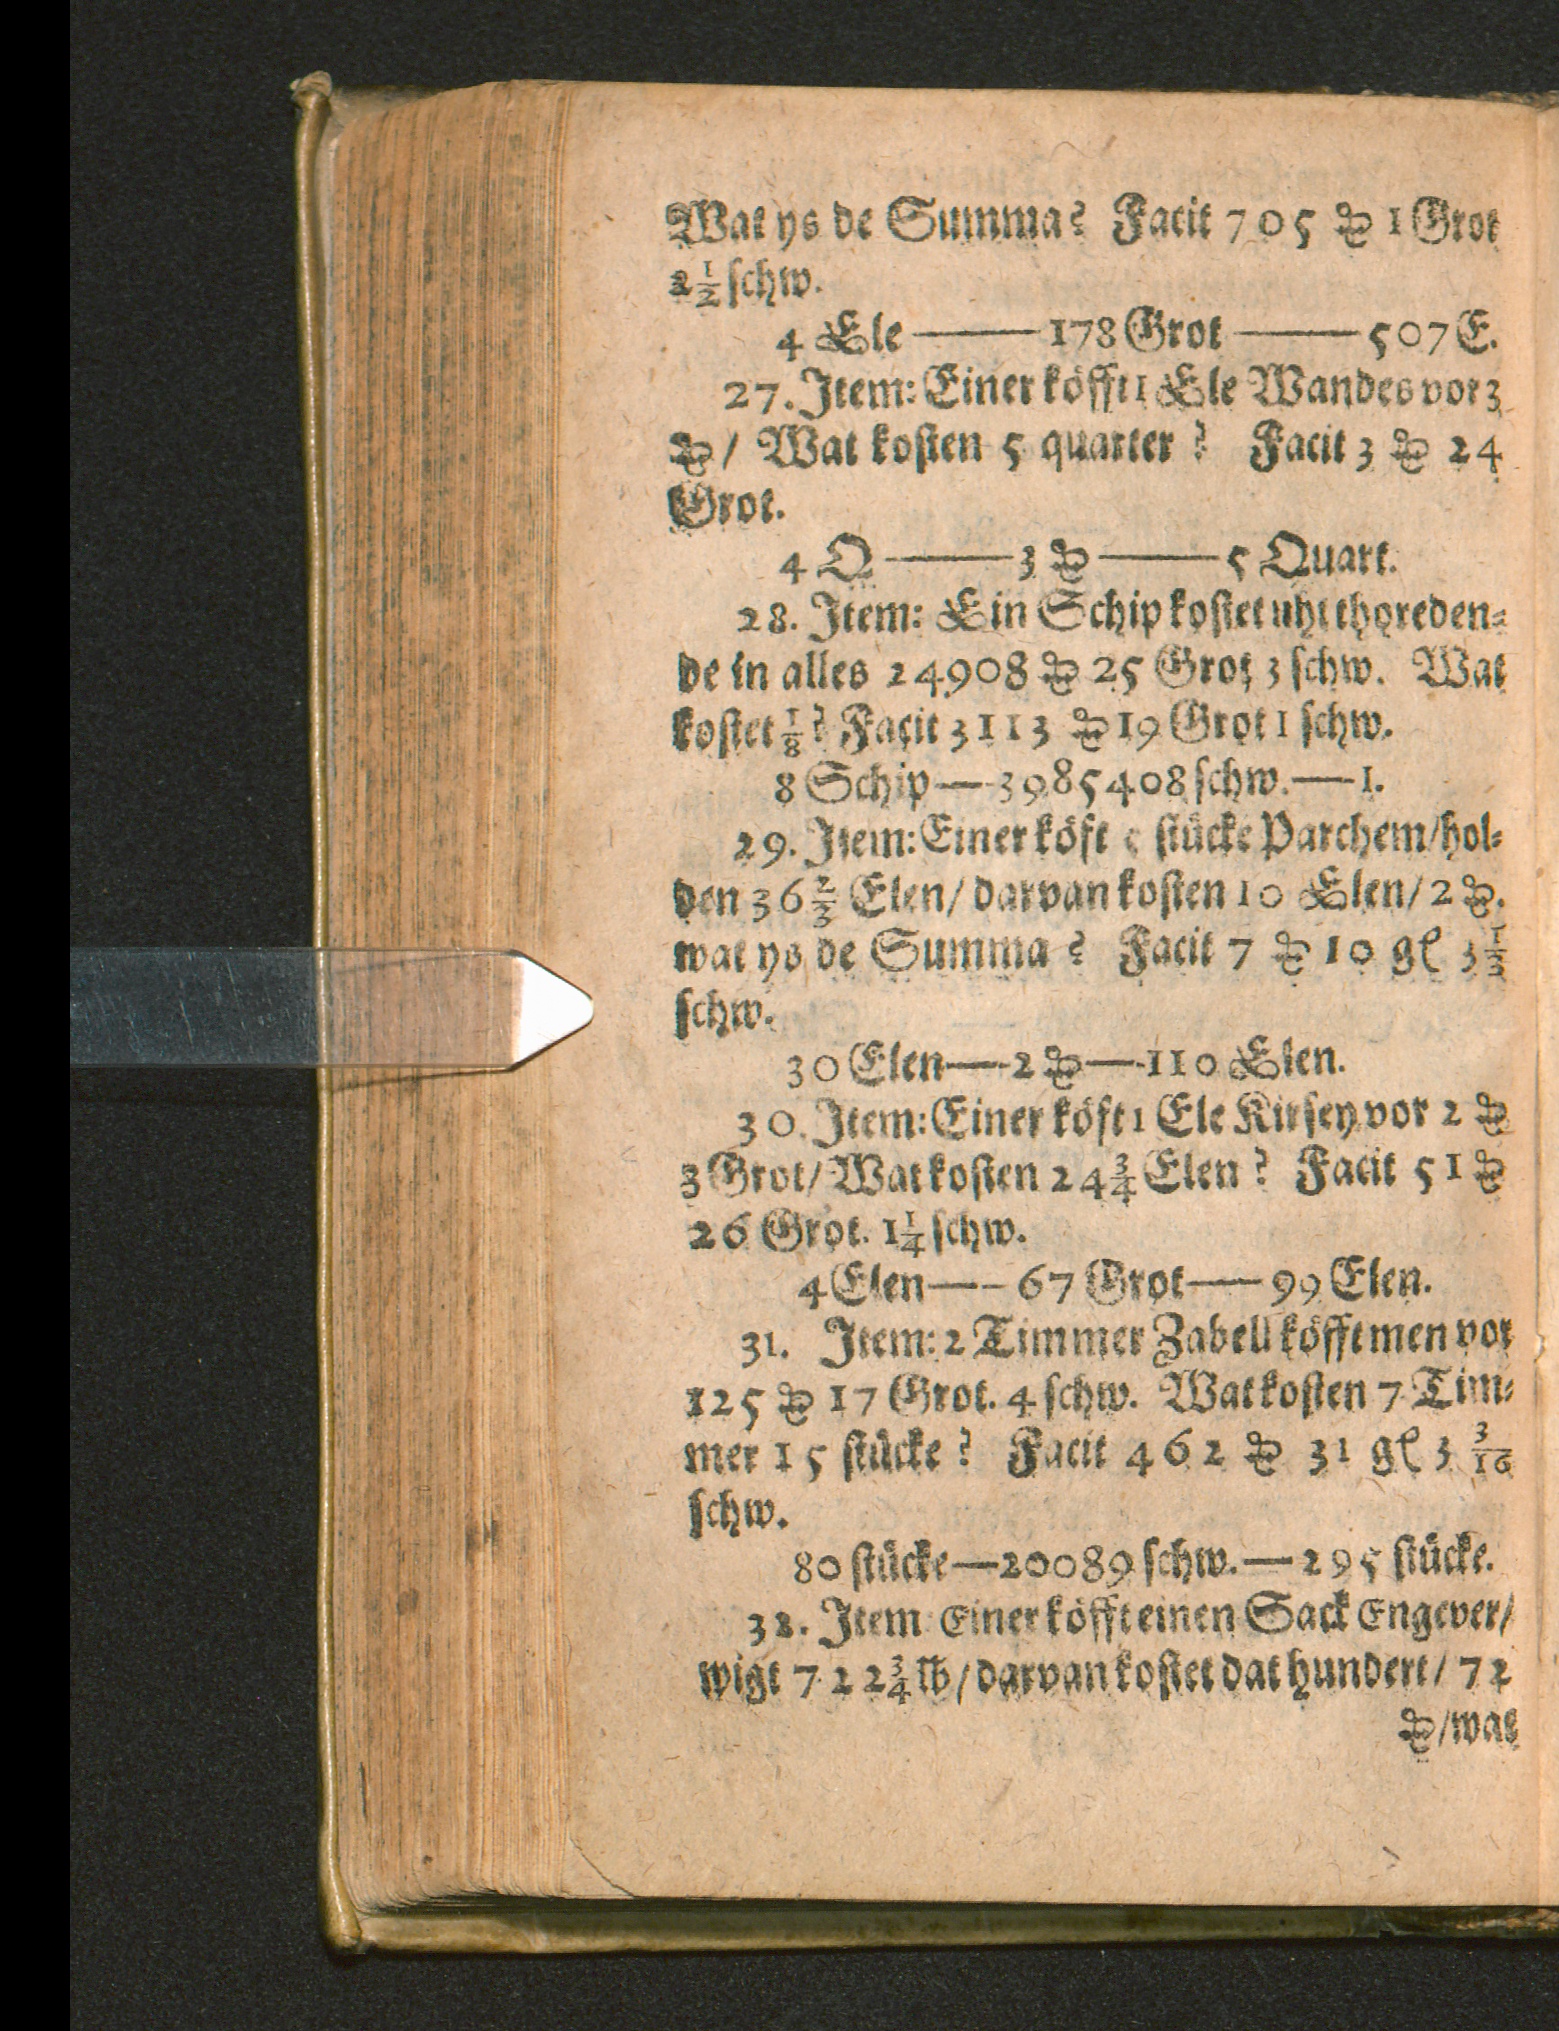 Wat ys de Summa? Facit 705 ₰ 1 Grot
2½ ſchw.
4 Ele —— 178 Grot —— 507 E.
27. Item: Einer köfft 1 Ele Wandes vor 3
₰/ Wat koſten 5 quarter? Facit 3 ₰ 24
Grot.
4 Q —— 3 ₰ —— 5 Quart.
28. Item: Ein Schip koſtet uht thoreden⸗
de in alles 24908 ₰ 25 Grot 3 ſchw. Wat
koſtet ⅛? Facit 3113 ₰ 19 Grot 1 ſchw.
8 Schip — 3985408 ſchw. — 1.
29. Item: Einer köft ſtücke Parchem/ hol⸗
den 36⅔ Elen/ darvan koſten 10 Elen/ 2 ₰.
wat ys de Summa? Facit 7 ₰ 10 gl 3⅕
ſchw.
30 Elen — 2 ₰ — 110 Elen.
30. Item: Einer köft 1 Ele Kirſey vor 2 ₰
3 Grot/ Wat koſten 24¾ Elen? Facit 51 ₰
26 Grot. 1¼ ſchw.
4 Elen — 67 Grot — 99 Elen.
31. Item: 2 Timmer Zabell köfft men vor
125 ₰ 17 Grot. 4 ſchw. Wat koſten 7 Tim⸗
mer 15 ſtücke? Facit 462 ₰ 31 gl 3 3/16
ſchw.
80 ſtücke — 20089 ſchw. — 295 ſtücke.
32. Item Einer köfft einen Sack Engever/
wigt 722¾ lb/ darvan koſtet dat hundert/ 72
₰/ wat